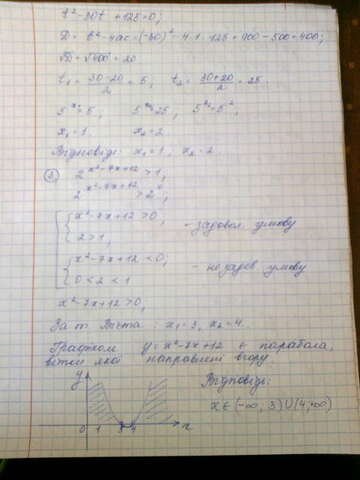 t² - 30t + 125 = 0;
D = b² - 4ac = (-30)² - 4·1·125 = 900 - 500 = 400;
√D = √400 = 20
t₁ = (30-20)/2 = 5, t₂ = (30+20)/2 = 25
5^x = 5, 5^x = 25, 5^x = 5²,
x₁ = 1 x₂ = 2
Відповідь: x₁ = 1, x₂ = 2
2^(x²-7x+12) > 1,
2^(x²-7x+12) > 2⁰
{ x² - 7x + 12 > 0, - задовол. умову
{ 2 > 1,
{ x² - 7x + 12 < 0; - не задов. умову
{ 0 < 2 < 1
x² - 7x + 12 > 0,
За т. Вієта: x₁ = 3, x₂ = 4.
Графіком y = x² - 7x + 12 є парабола,
вітки якої направлені вгору.
y Відповідь:
x ∈ (-∞; 3) ∪ (4; +∞)
0 1 3 4 x